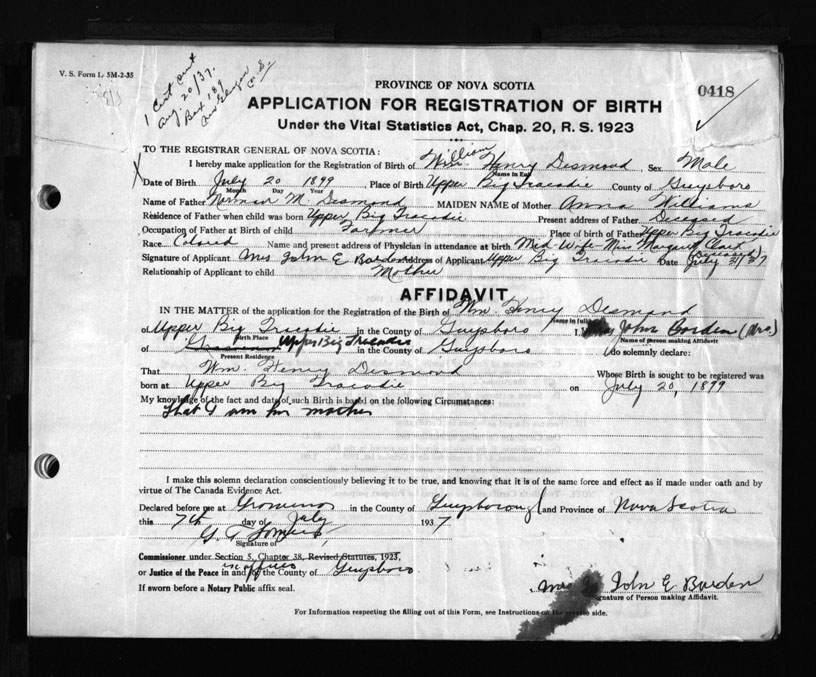 V. S. Form L. 5M-2-35
1 Cert sent
Aug. 20/37.
Box 189
N.S.
PROVINCE OF NOVA SCOTIA
0418
APPLICATION FOR REGISTRATION OF BIRTH
Under the Vital Statistics Act, Chap. 20, R. S. 1923
TO THE REGISTRAR GENERAL OF NOVA SCOTIA:
I hereby make application for the Registration of Birth of Wm. William Henry Desmond, Sex Male
Name in Full
X Date of Birth July 20 1899, Place of Birth Upper Big Tracadie County of Guysboro
Month Day Year
Name of Father Norman M. Desmond MAIDEN NAME of Mother Anna Williams
Residence of Father when child was born Upper Big Tracadie Present address of Father Deceased
Occupation of Father at Birth of child Farmer Place of birth of Father Upper Big Tracadie
Race Colored Name and present address of Physician in attendance at birth Mid-Wife Mrs Margaret Clark
(Deceased)
Signature of Applicant Mrs John E Borden Address of Applicant Upper Big Tracadie Date July 7/37
Relationship of Applicant to child Mother
AFFIDAVIT
IN THE MATTER of the application for the Registration of the Birth of Wm. Henry Desmond
Name in full
of Upper Big Tracadie in the County of Guysboro I, John Borden (Mrs)
Birth Place Name of Person making Affidavit
of Upper Big Tracadie in the County of Guysboro do solemnly declare:
Present Residence
That Wm. Henry Desmond Whose Birth is sought to be registered was
born at Upper Big Tracadie on July 20, 1899
My knowledge of the fact and date of such Birth is based on the following Circumstances:
That I am his mother
I make this solemn declaration conscientiously believing it to be true, and knowing that it is of the same force and effect as if made under oath and by
virtue of The Canada Evidence Act.
Declared before me at in the County of Guysborough and Province of Nova Scotia
this 7th day of July 1937
Signature of
Commissioner under Section 5, Chapter 38, Revised Statutes, 1923,
or Justice of the Peace in and for the County of Guysboro.
If sworn before a Notary Public affix seal.
Mrs John E Borden
Signature of Person making Affidavit.
For Information respecting the filling out of this Form, see Instructions on the reverse side.